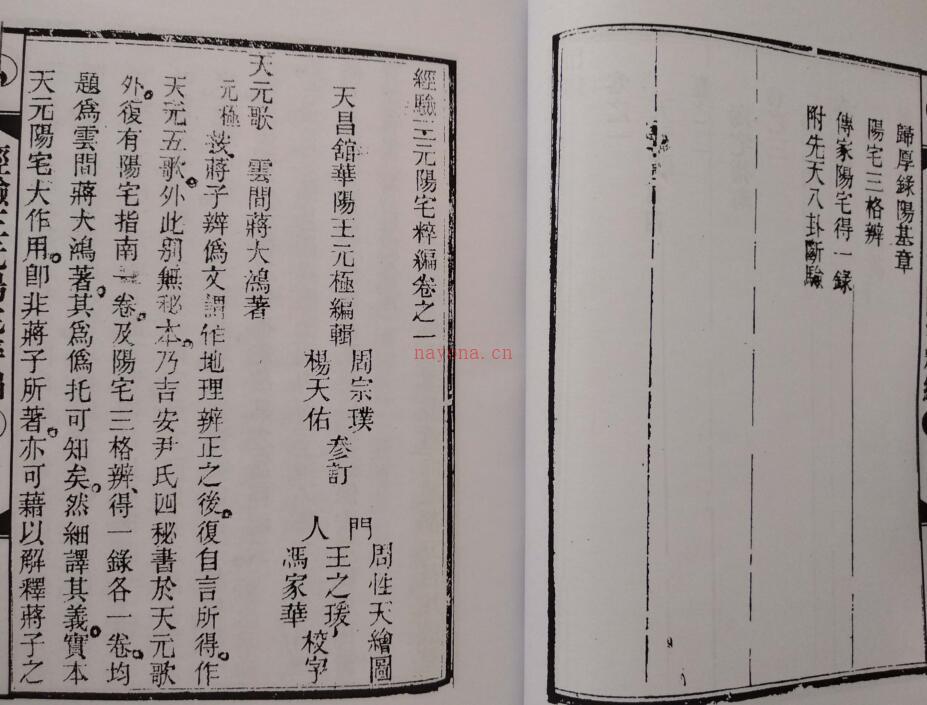 歸厚錄陽基章
陽宅三格辨
傳家陽宅得一錄
附先天八卦斷驗
經驗三元陽宅粹編卷之一
天昌舘華陽王元極編輯
周宗璞
楊天佑
參訂
門
人
周性天繪圖
王之瑗
馮家華
校字
天元歌 雲間蔣大鴻著
元極莰蔣子辨僞文謂作地理辨正之後復自言所得作
天元五歌外此別無秘本乃吉安尹氏四秘書於天元歌
外復有陽宅指南一卷及陽宅三格辨得一錄各一卷均
題爲雲間蔣大鴻著其爲僞托可知矣然細譯其義實本
天元陽宅大作用卽非蔣子所著亦可藉以解釋蔣子之
nayona.cn